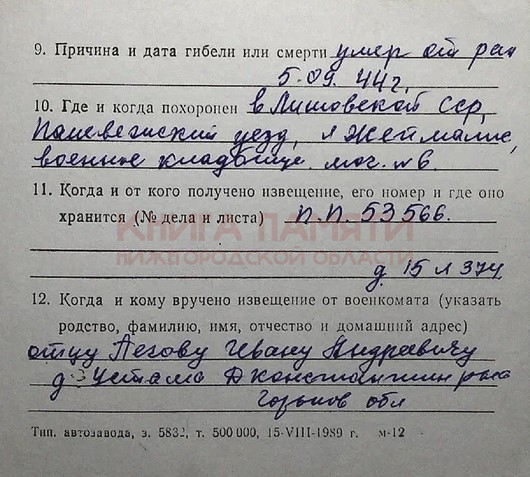 9. Причина и дата гибели или смерти умер от ран
5.09.44г.
10. Где и когда похоронен в Литовской сср,
Паневежский уезд, м Жеймалис,
военное кладбище. мог. №6.
11. Когда и от кого получено извещение, его номер и где оно
хранится (№ дела и листа) п.п. 53566.
КНИГА ПАМЯТИ
НИЖЕГОРОДСКОЙ ОБЛАСТИ
д. 15 л 374
12. Когда и кому вручено извещение от военкомата (указать
родство, фамилию, имя, отчество и домашний адрес)
отцу Пегову Ивану Андравичу
д Устама Дконстантин рна
Горьков обл
Тип. автозавода, з. 5832, т. 500 000, 15-VIII-1989 г. м-12